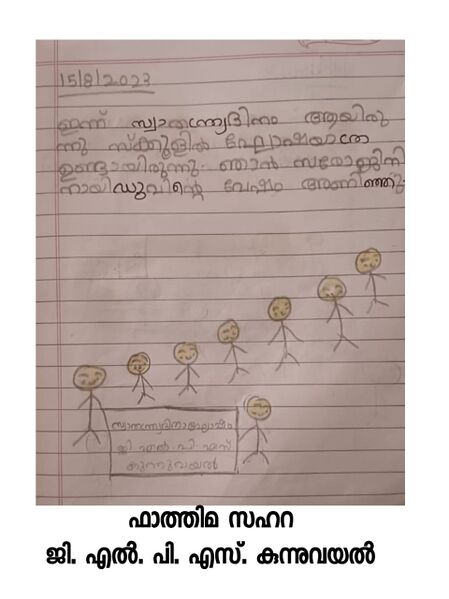 15/8/2023
ഇന്ന് സ്വാതന്ത്ര്യദിനം ആയിരു
ന്നു സ്ക്കൂളിൽ ഘോഷയാത്ര
ഉണ്ടായിരുന്നു. ഞാൻ സരോജിനി
നായിഡുവിന്റെ വേഷം അണിഞ്ഞു.
സ്വാതന്ത്ര്യദിനാഘോഷം
ജി.എൽ.പി.എസ്
കുന്നുവയൽ
ഫാത്തിമ സഹറ
ജി. എൽ. പി. എസ്. കുന്നുവയൽ